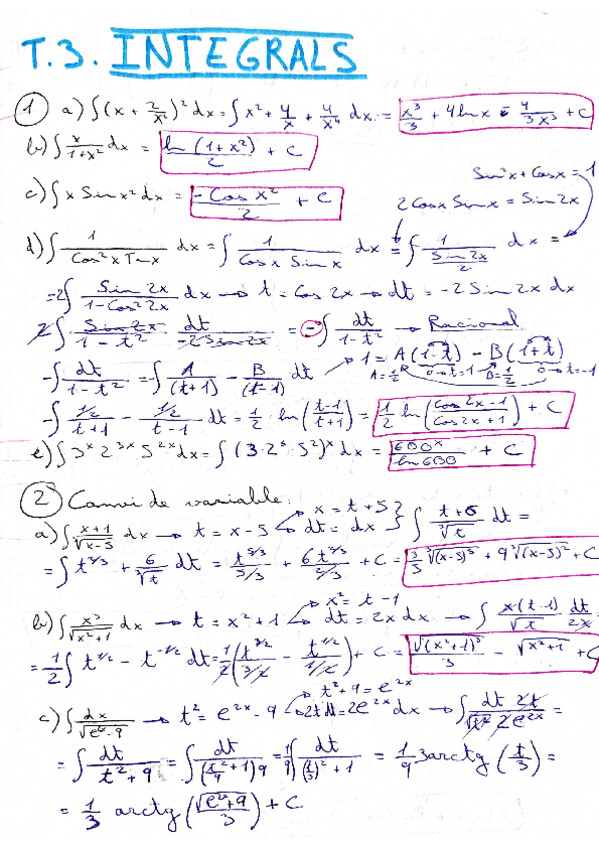 T.3. INTEGRALS
1 a) ∫(x + 2/x²)² dx = ∫ x² + 4/x + 4/x⁴ dx = x³/3 + 4 ln x - 4/3x³ + C
b) ∫ x/1+x² dx = ln (1+x²)/2 + C
Sin²x + Cosx = 1
c) ∫ x Sin x² dx = - Cos x²/2 + C
2 Cosx Sinx = Sin 2x
d) ∫ 1/Cos²x Tan x dx = ∫ 1/Cosx Sinx dx = ∫ 1/(Sin 2x/2) dx =
= 2∫ Sin 2x/1-Cos²2x dx → t = Cos 2x → dt = -2 Sin 2x dx
2∫ Sin 2x/1-t² dt/-2 Sin 2x = -∫ dt/1-t² → Racional
-∫ dt/1-t² = ∫ A/(t+1) - B/(t-1) dt → 1 = A(1-t) - B(1+t)
A=1/2 0→t=1 B=1/2 0→t=-1
-∫ 1/2/t+1 - 1/2/t-1 dt = 1/2 ln(t-1/t+1) = 1/2 ln (Cos 2x-1/Cos 2x+1) + C
e) ∫3ˣ 2³ˣ 5²ˣ dx = ∫ (3·2³·5²)ˣ dx = 600ˣ/ln 600 + C
2 Canvi de variable:
x = t+5
a) ∫ x+1/∛x-5 dx → t = x-5 dt = dx ∫ t+6/∛t dt =
= ∫ t^2/3 + 6/∛t dt = t^5/3/5/3 + 6t^2/3/2/3 + C = 3/5 ∛(x-5)⁵ + 9∛(x-5)² + C
x² = t-1
b) ∫ x³/√x²+1 dx → t = x²+1 dt = 2x dx → ∫ x(t-1)/√t dt/2x
= 1/2 ∫ t^1/2 - t^-1/2 dt = 1/2 (t^3/2/3/2 - t^1/2/1/2) + C = √(x²+1)³/3 - √x²+1 + C
t²+9 = e²ˣ
c) ∫ dx/√e²ˣ-9 → t² = e²ˣ-9 2t dt = 2e²ˣ dx → ∫ dt 2t/√t² 2e²ˣ =
= ∫ dt/t²+9 = ∫ dt/(t²/9+1)9 = 1/9 ∫ dt/(t/3)²+1 = 1/9 3arctg (t/3) =
= 1/3 arctg (√e²ˣ+9/3) + C